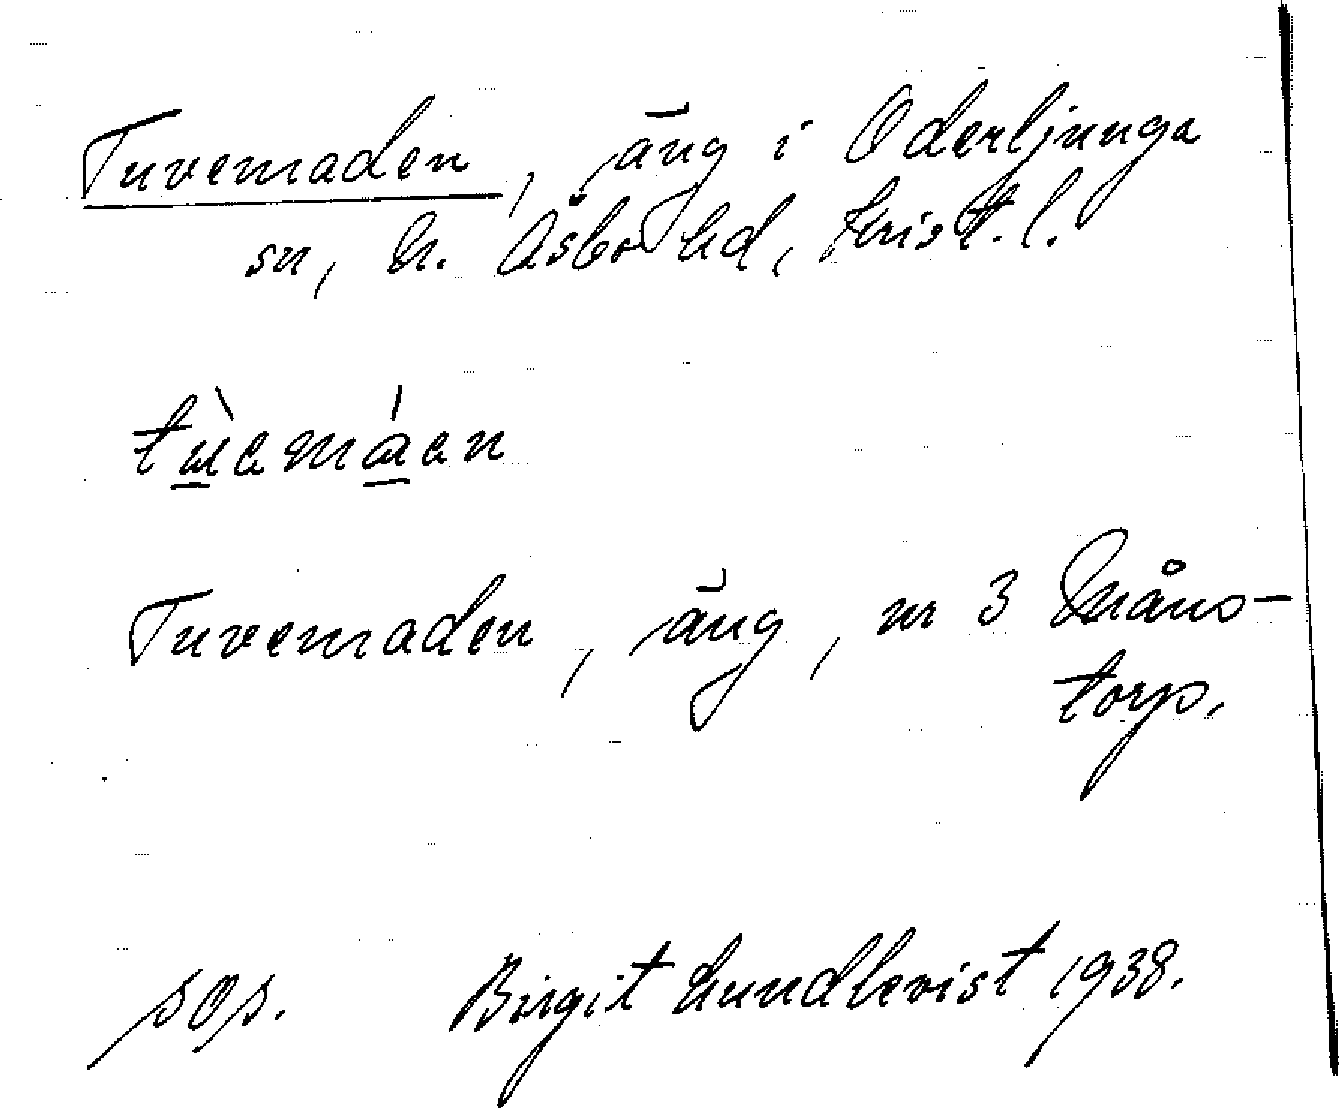 Tuvemaden, äng i Oderljunga
sn, N. Åsbo hd, Krist. l.
tùemáen
Tuvemaden, äng, nr 3 Måns-
torp.
pop. Birgit Lundkvist 1938.